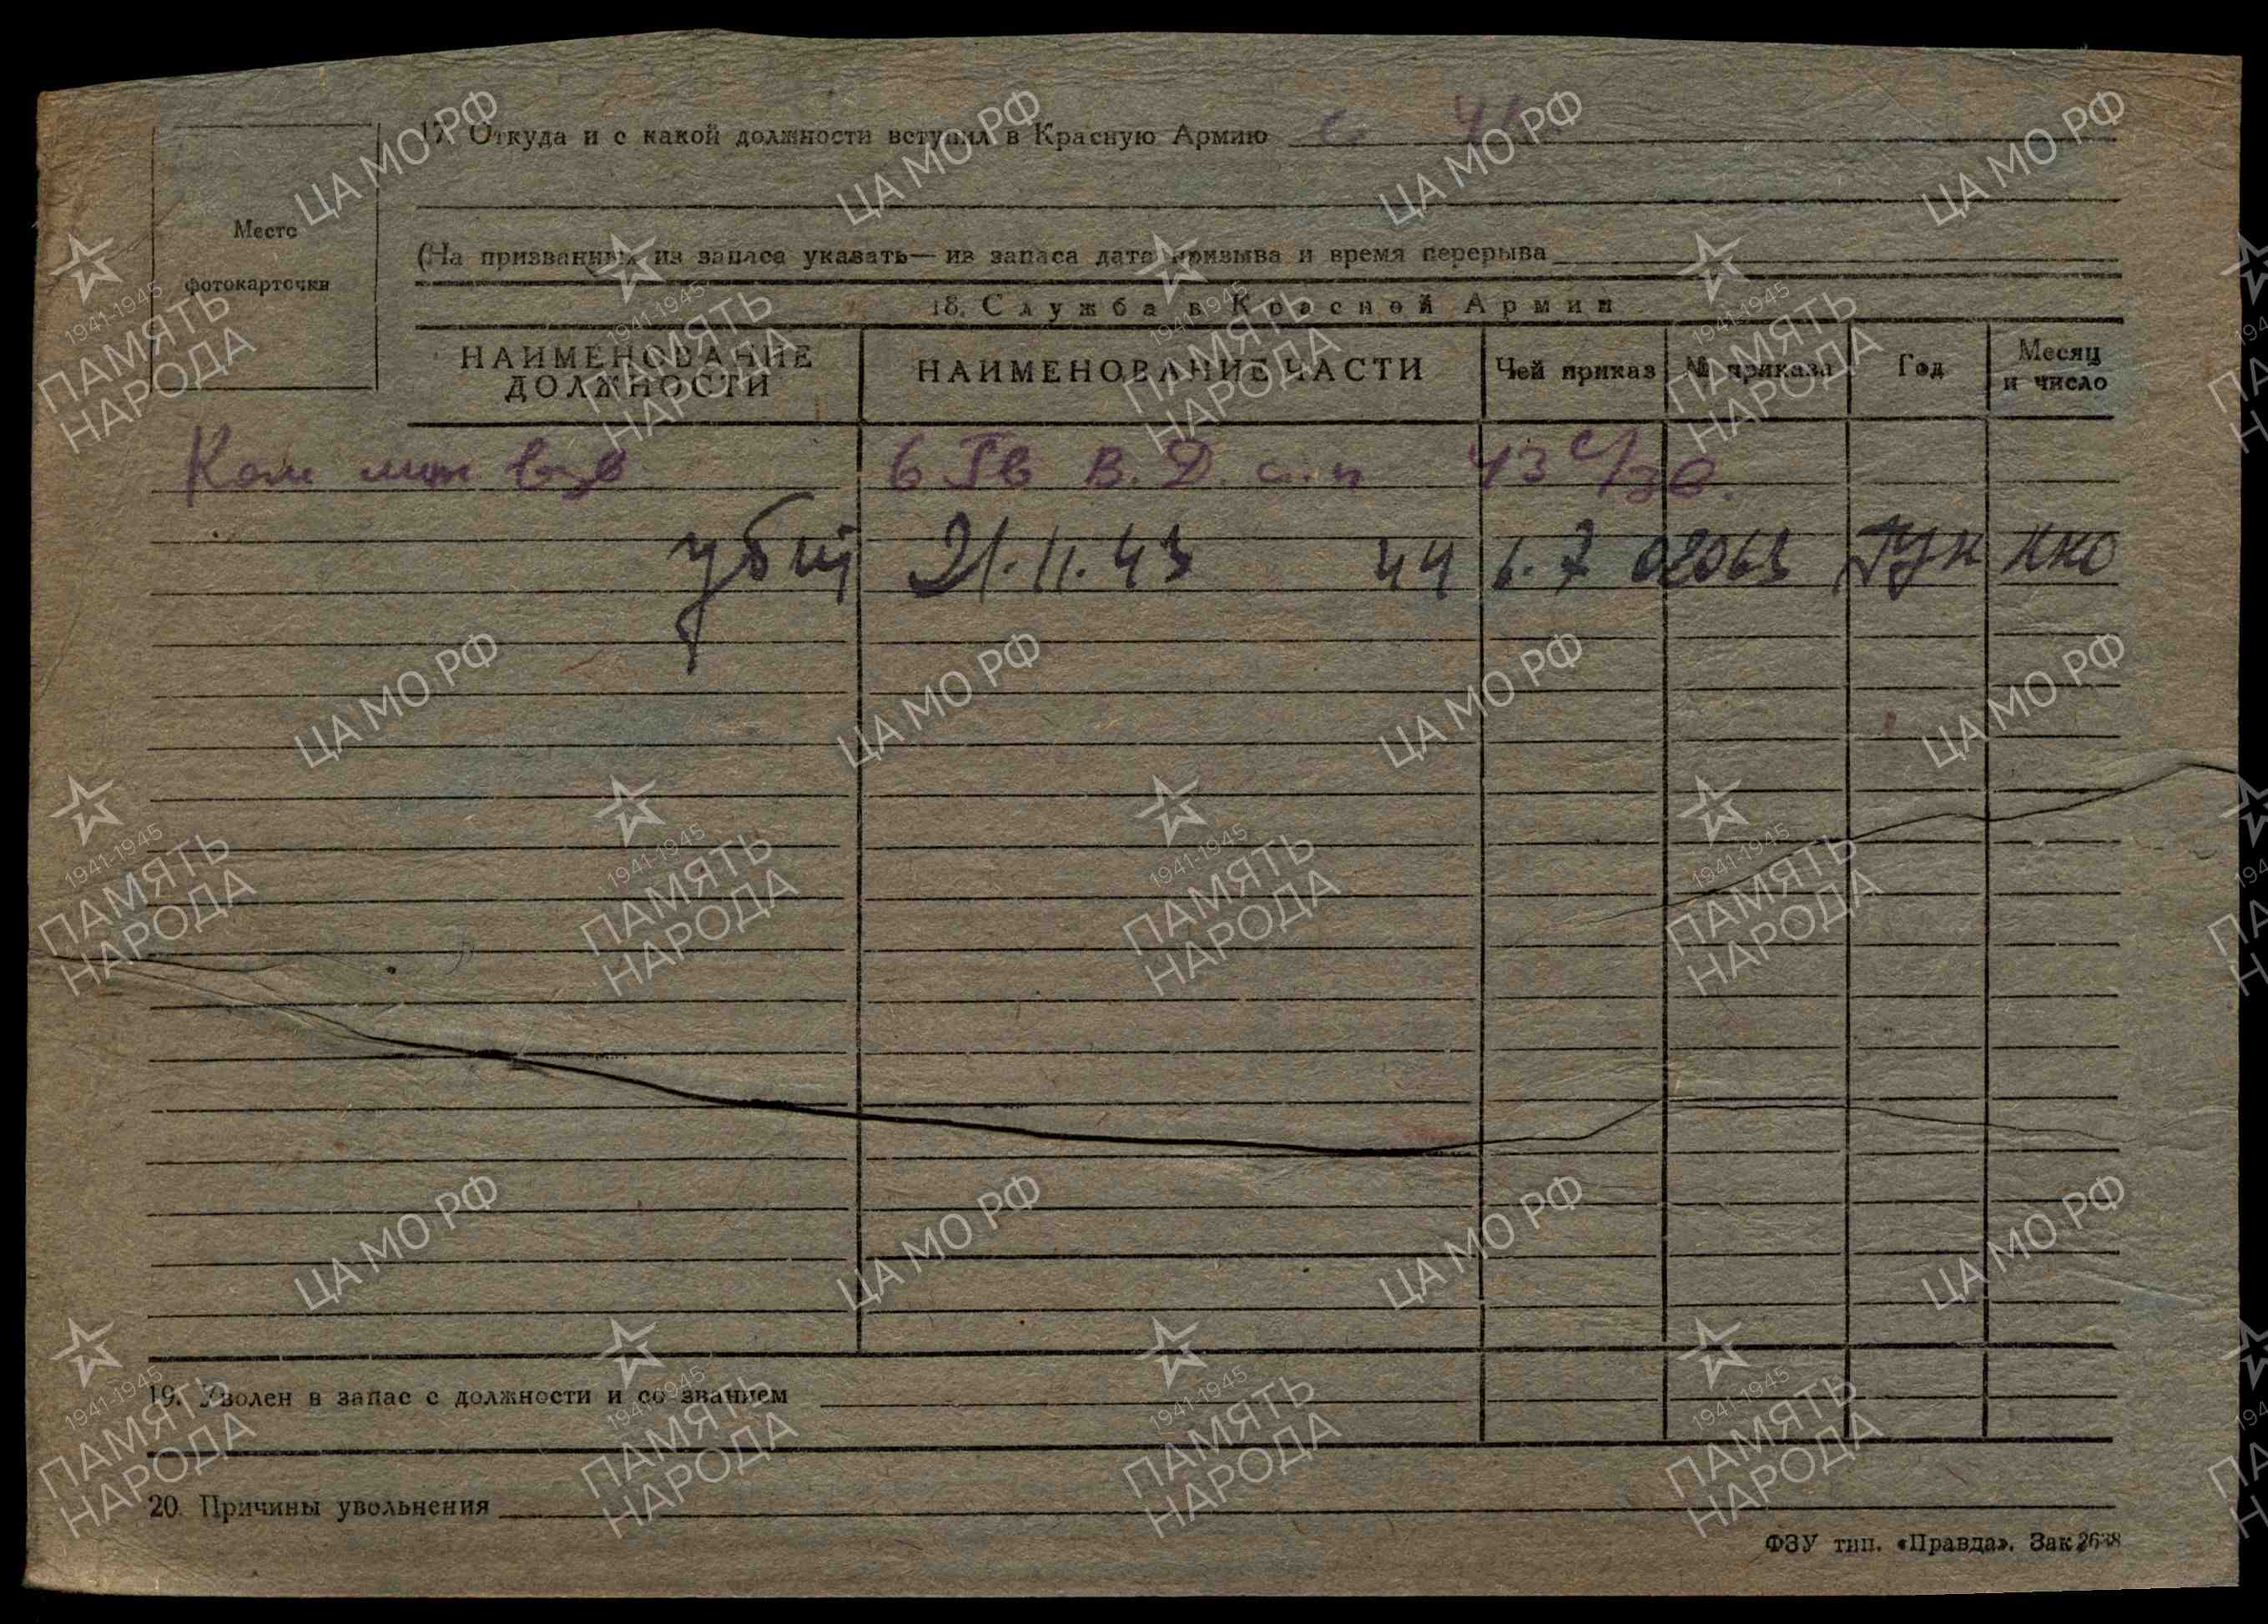 17. Откуда и с какой должности вступил в Красную Армию с 41
Место
фотокарточки
(На призванных из запаса указать— из запаса дата призыва и время перерыва
18. Служба в Красной Армии
НАИМЕНОВАНИЕ ДОЛЖНОСТИ
НАИМЕНОВАНИЕ ЧАСТИ
Чей приказ
№ приказа
Год
Месяц и число
Ком мин взв 6 Гв В. Д. с. п 43
убит 21.11.43 44 6. 7 02063 ГУК НКО
19. Уволен в запас с должности и со званием
20. Причины увольнения
ФЗУ тип. «Правда». Зак 2638
ЦА МО РФ
1941-1945
ПАМЯТЬ
НАРОДА